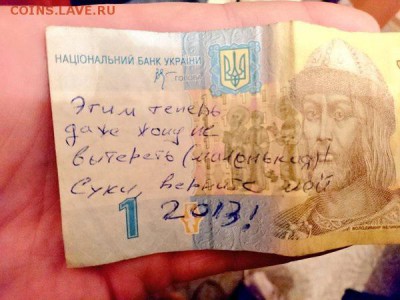 COINS.LAVE.RU
НАЦІОНАЛЬНИЙ БАНК УКРАЇНИ
Этим теперь
даже жопу не
вытереть (маленькая)!
Суки, верните мой
2013!
1